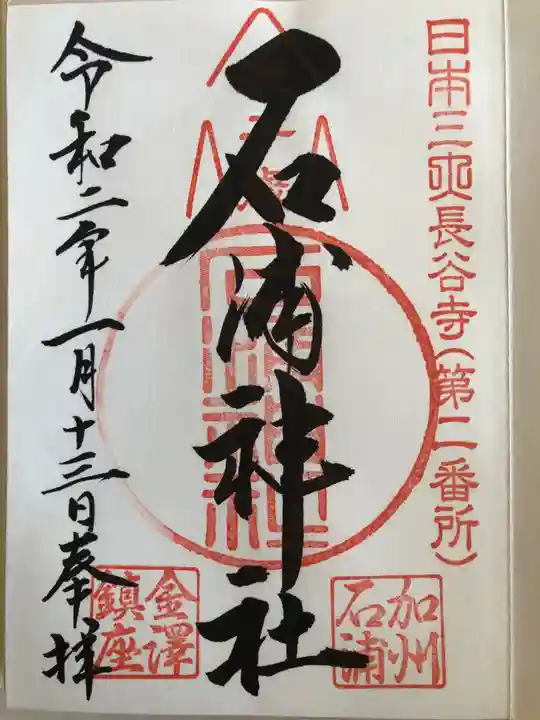 日本三大長谷寺(第二番所)
石浦神社
加州
石浦
金澤
鎮座
令和二年一月十三日奉拝